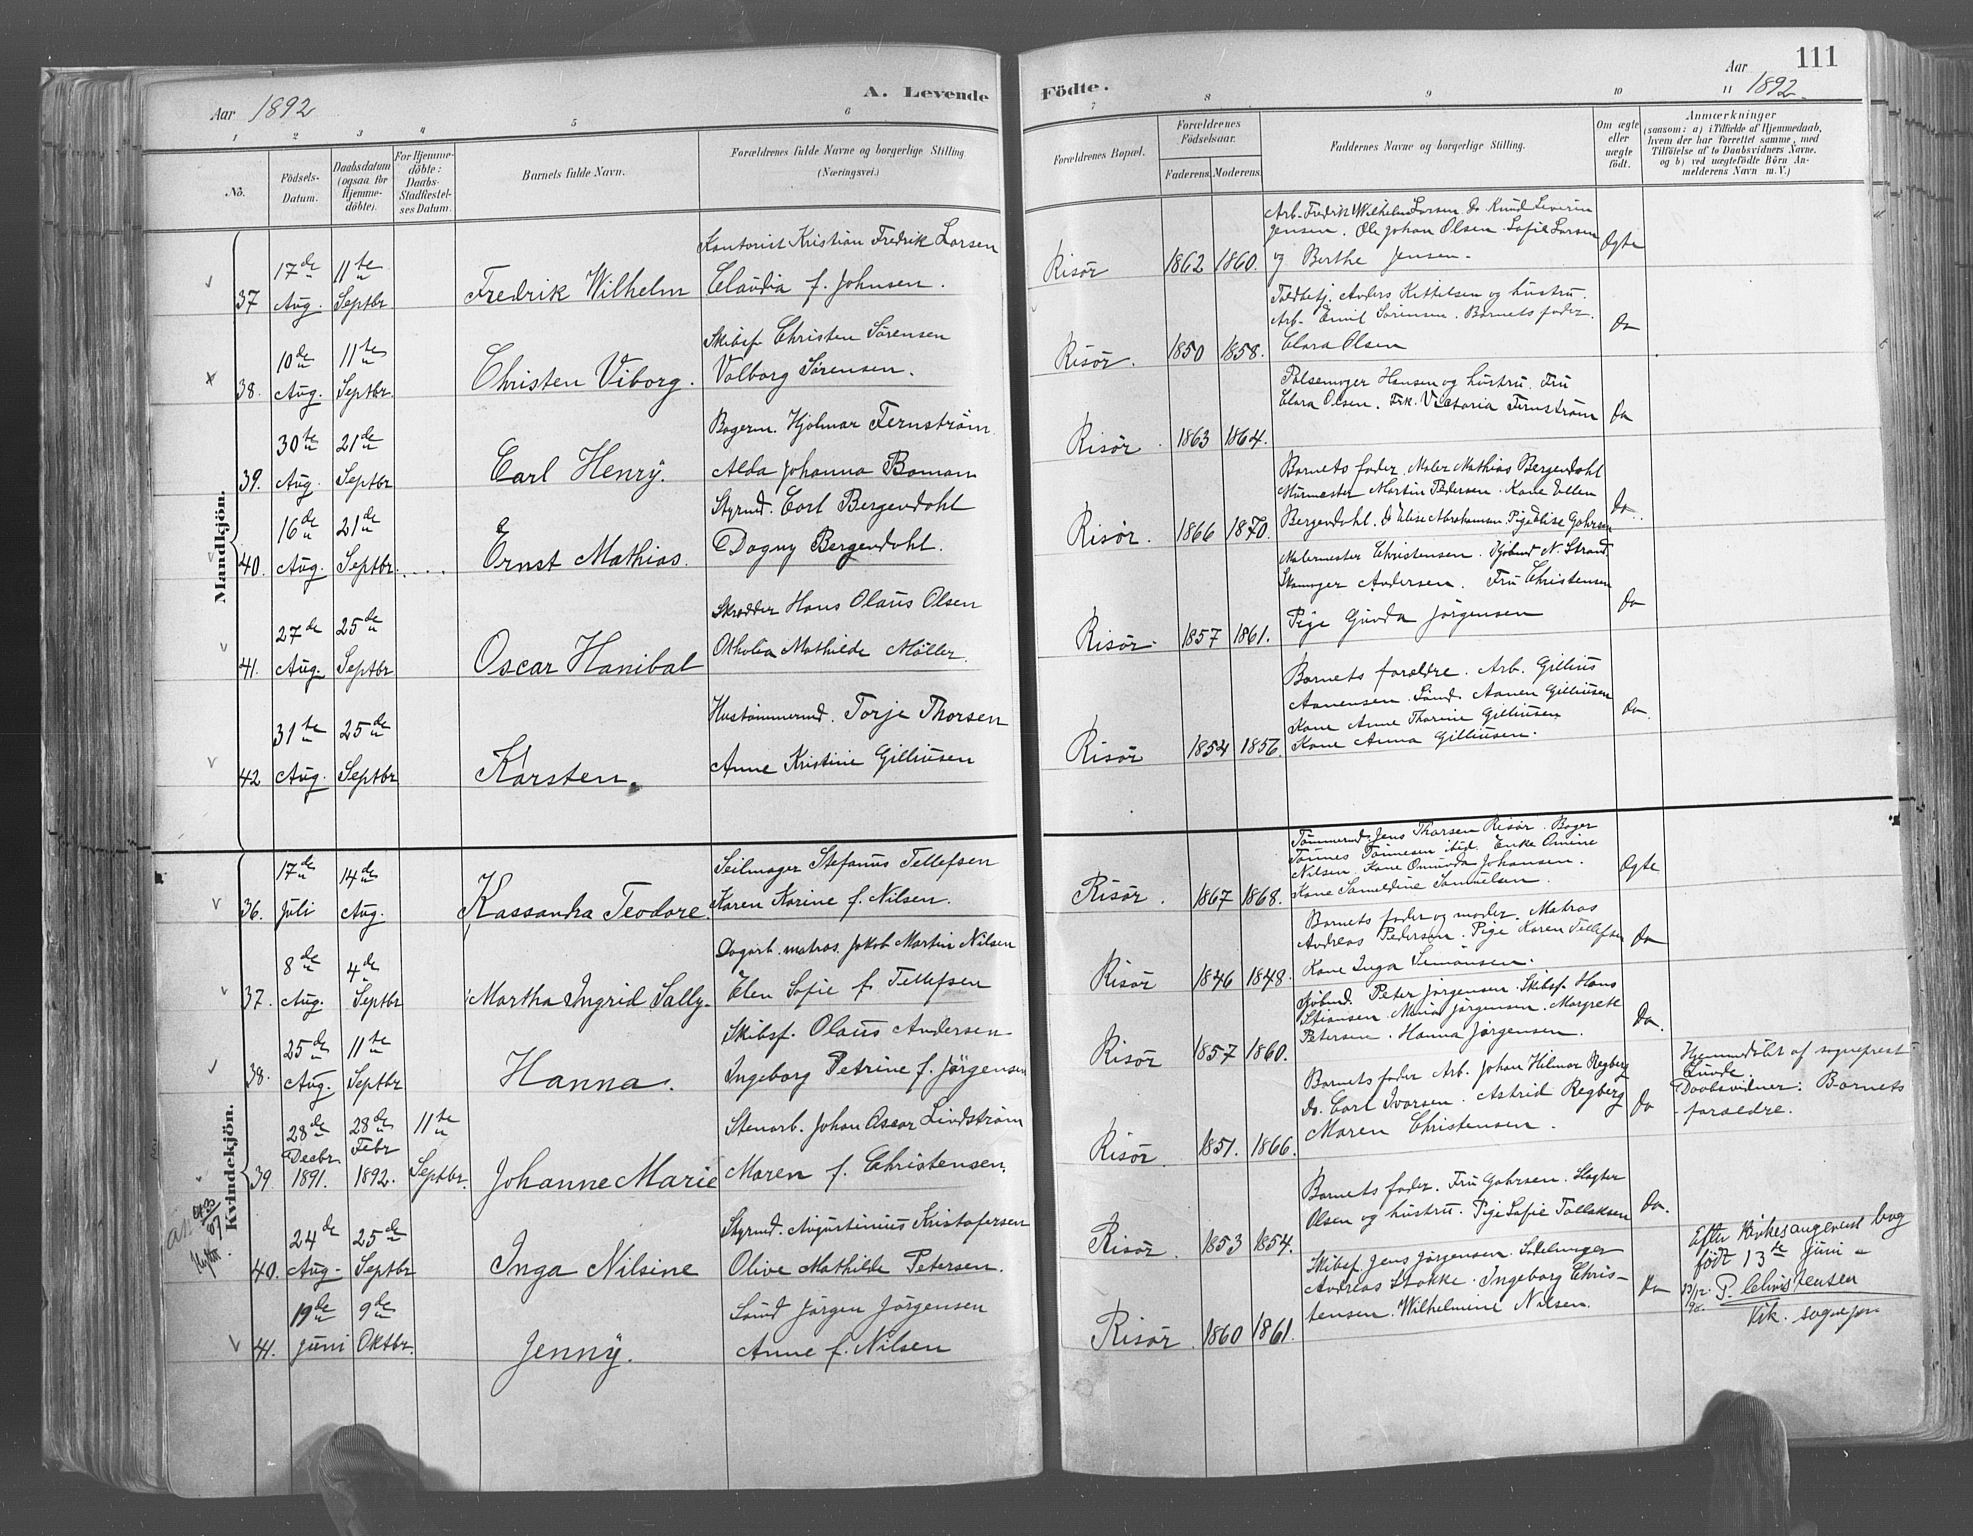 111
Aar 1892
A. Levende Födte.
Aar 1892.
1 2 3 4 5 6 7 8 9 10 11
No.
Födsels-Datum.
Daabsdatum (ogsaa for Hjemmedöbte).
For Hjemmedöbte: Daabs-Stadfestelses Datum.
Barnets fulde Navn.
Forældrenes fulde Navne og borgerlige Stilling
(Næringsvei.)
Forældrenes Bopæl.
Forældrenes Födselsaar.
Faderens. Moderens.
Faddernes Navne og borgerlige Stilling.
Om ægte eller uægte födt.
Anmærkninger
(saasom: a) i Tilfælde af Hjemmedaab,
hvem der har forrettet samme, med
Tilföielse af to Daabsvidners Navne.
og b) ved uægtefödte Börn An-
melderens Navn m. V.)
Mandkjön.
37 17de Aug. 11te Septbr
Fredrik Wilhelm
Kontorist Kristian Fredrik Larsen
Claudia f. Johnsen.
Risör 1862 1860.
Arb. Fredrik Wilhelm Larsen Do Knud Severin
Jensen. Ole Johan Olsen. Sofie Larsen
og Berthe Jensen.
Ægte
38. 10de Aug. 11te Septbr.
Christen Viborg.
Skibsf Christen Sörensen
Valborg Sörensen.
Risör. 1850 1858.
Toldbetj. Anders Kittelsen og hustru.
Arb. Emil Sörensen. Barnets fader.
Clara Olsen
Do
39. 30te Aug. 21de Septbr
Carl Henry.
Bagerm. Hjalmar Fernström
Alda Johanna Boman
Risör. 1863 1864.
Pölsemager Hansen og hustru. Fru
Clara Olsen. Frk. Victoria Fernström
Do
40. 16de Aug. 21de Septbr.
Ernst Mathias.
Styrmd. Carl Bergendahl
Dagny Bergendahl.
Risör. 1866 1870.
Barnets fader. Maler Mathias Bergendahl
Murmester Martin Pedersen. Kone Ellen
Bergendahl. Do Elise Abrahamsen Pige Elise Gahrsen
Do.
41. 27de Aug. 25de Septbr
Oscar Hanibal
Skrædder Hans Olaus Olsen
Othelia Mathilde Möller.
Risör. 1857 1861.
Malermester Christensen. Kjöbmd N. Strand
Skomager Andersen. Fru Christensen
Pige Gunda Jörgensen
Do
42 31te Aug. 25de Septbr
Karsten.
Hustömmermd. Torje Thorsen
Anne Kristine Gilliusen
Risör 1854 1856.
Barnets forældre. Arb. Gillius
Aanensen. Sömd. Aanen Gilliusen
Kone Anne Thorine Gilliusen
Kone Anna Gilliusen.
Do.
Kvindekjön.
36. 17de Juli 14de Aug.
Kassandra Teodore.
Seilmager Stefanus Tellefsen
Karen Karine f. Nilsen.
Risör. 1867 1868.
Tömmermd. Jens Thorsen Risör. Bager
Tönnes Tönnesen ibid. Enke Amine
Nilsen. Kone Omunda Johansen.
Kone Samueldine Samuelsen.
Ægte
37. 8de Aug. 4de Septbr
Martha Ingrid Sally.
Dagarb. matros. Jakob Martin Nilsen
Elen Sofie f. Tellefsen
Risör 1846 1848.
Barnets fader og moder. Matros
Andreas Pedersen. Pige Karen Tellefsen
Kone Inga Simonsen.
Do
38. 25de Aug. 11te Septbr
Hanna.
Skibsf. Olaus Andersen
Ingeborg Petrine f. Jörgensen
Risör 1857 1860.
Kjöbmd. Peter Jörgensen. Skibsf. Hans
Stiansen. Maria Jörgensen. Margrete
Petersen. Hanna Jörgensen.
Do.
39. 28de Decbr 1891. 28de Febr 1892. 11te Septbr.
Johanne Marie
Stenarb. Johan Oscar Lindström
Maren f. Christensen.
Risör. 1851. 1866.
Barnets fader Arb. Johan Hilmar Regberg
Do. Carl Ivarsen. Astrid Regberg
Maren Christensen.
Do
Hjemmdöbt af sogneprest
Lunde.
Daabsvidner: Barnets
forældre.
40. 24de Aug. 25de Septbr
Inga Nilsine
Styrmd. Augustinius Kristofersen
Olive Mathilde Petersen.
Risör. 1853 1854.
Barnets fader. Fru Gahrsen. Slagter
Olsen og hustru. Pige Sofie Tollaksen
Do.
41. 19de Juni 9de Oktbr.
Jenny.
Sömd Jörgen Jörgensen
Anne f. Nilsen
Risör. 1860 1861.
Skibsf Jens Jörgensen. Sadelmager
Andreas Stokke. Ingeborg Chris-
tensen. Wilhelmine Nilsen.
Do
Efter Kirkesangerens bog
födt 13de Juni
P. Christensen
Vik. sognepr